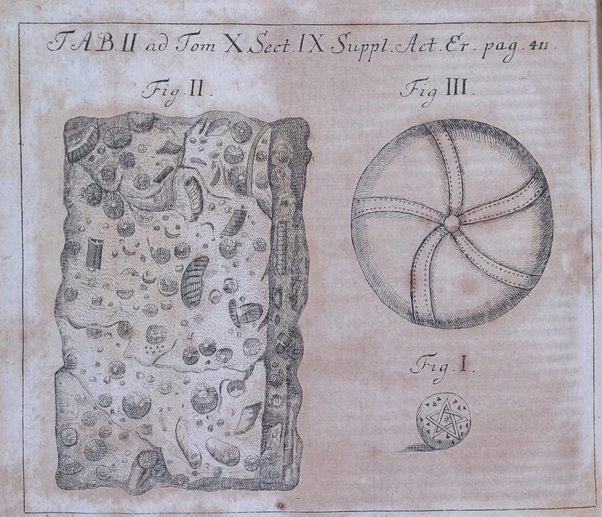 TAB. II ad Tom X Sect. IX Suppl. Act. Er. pag. 411.
Fig. II.
Fig III.
Fig. I.